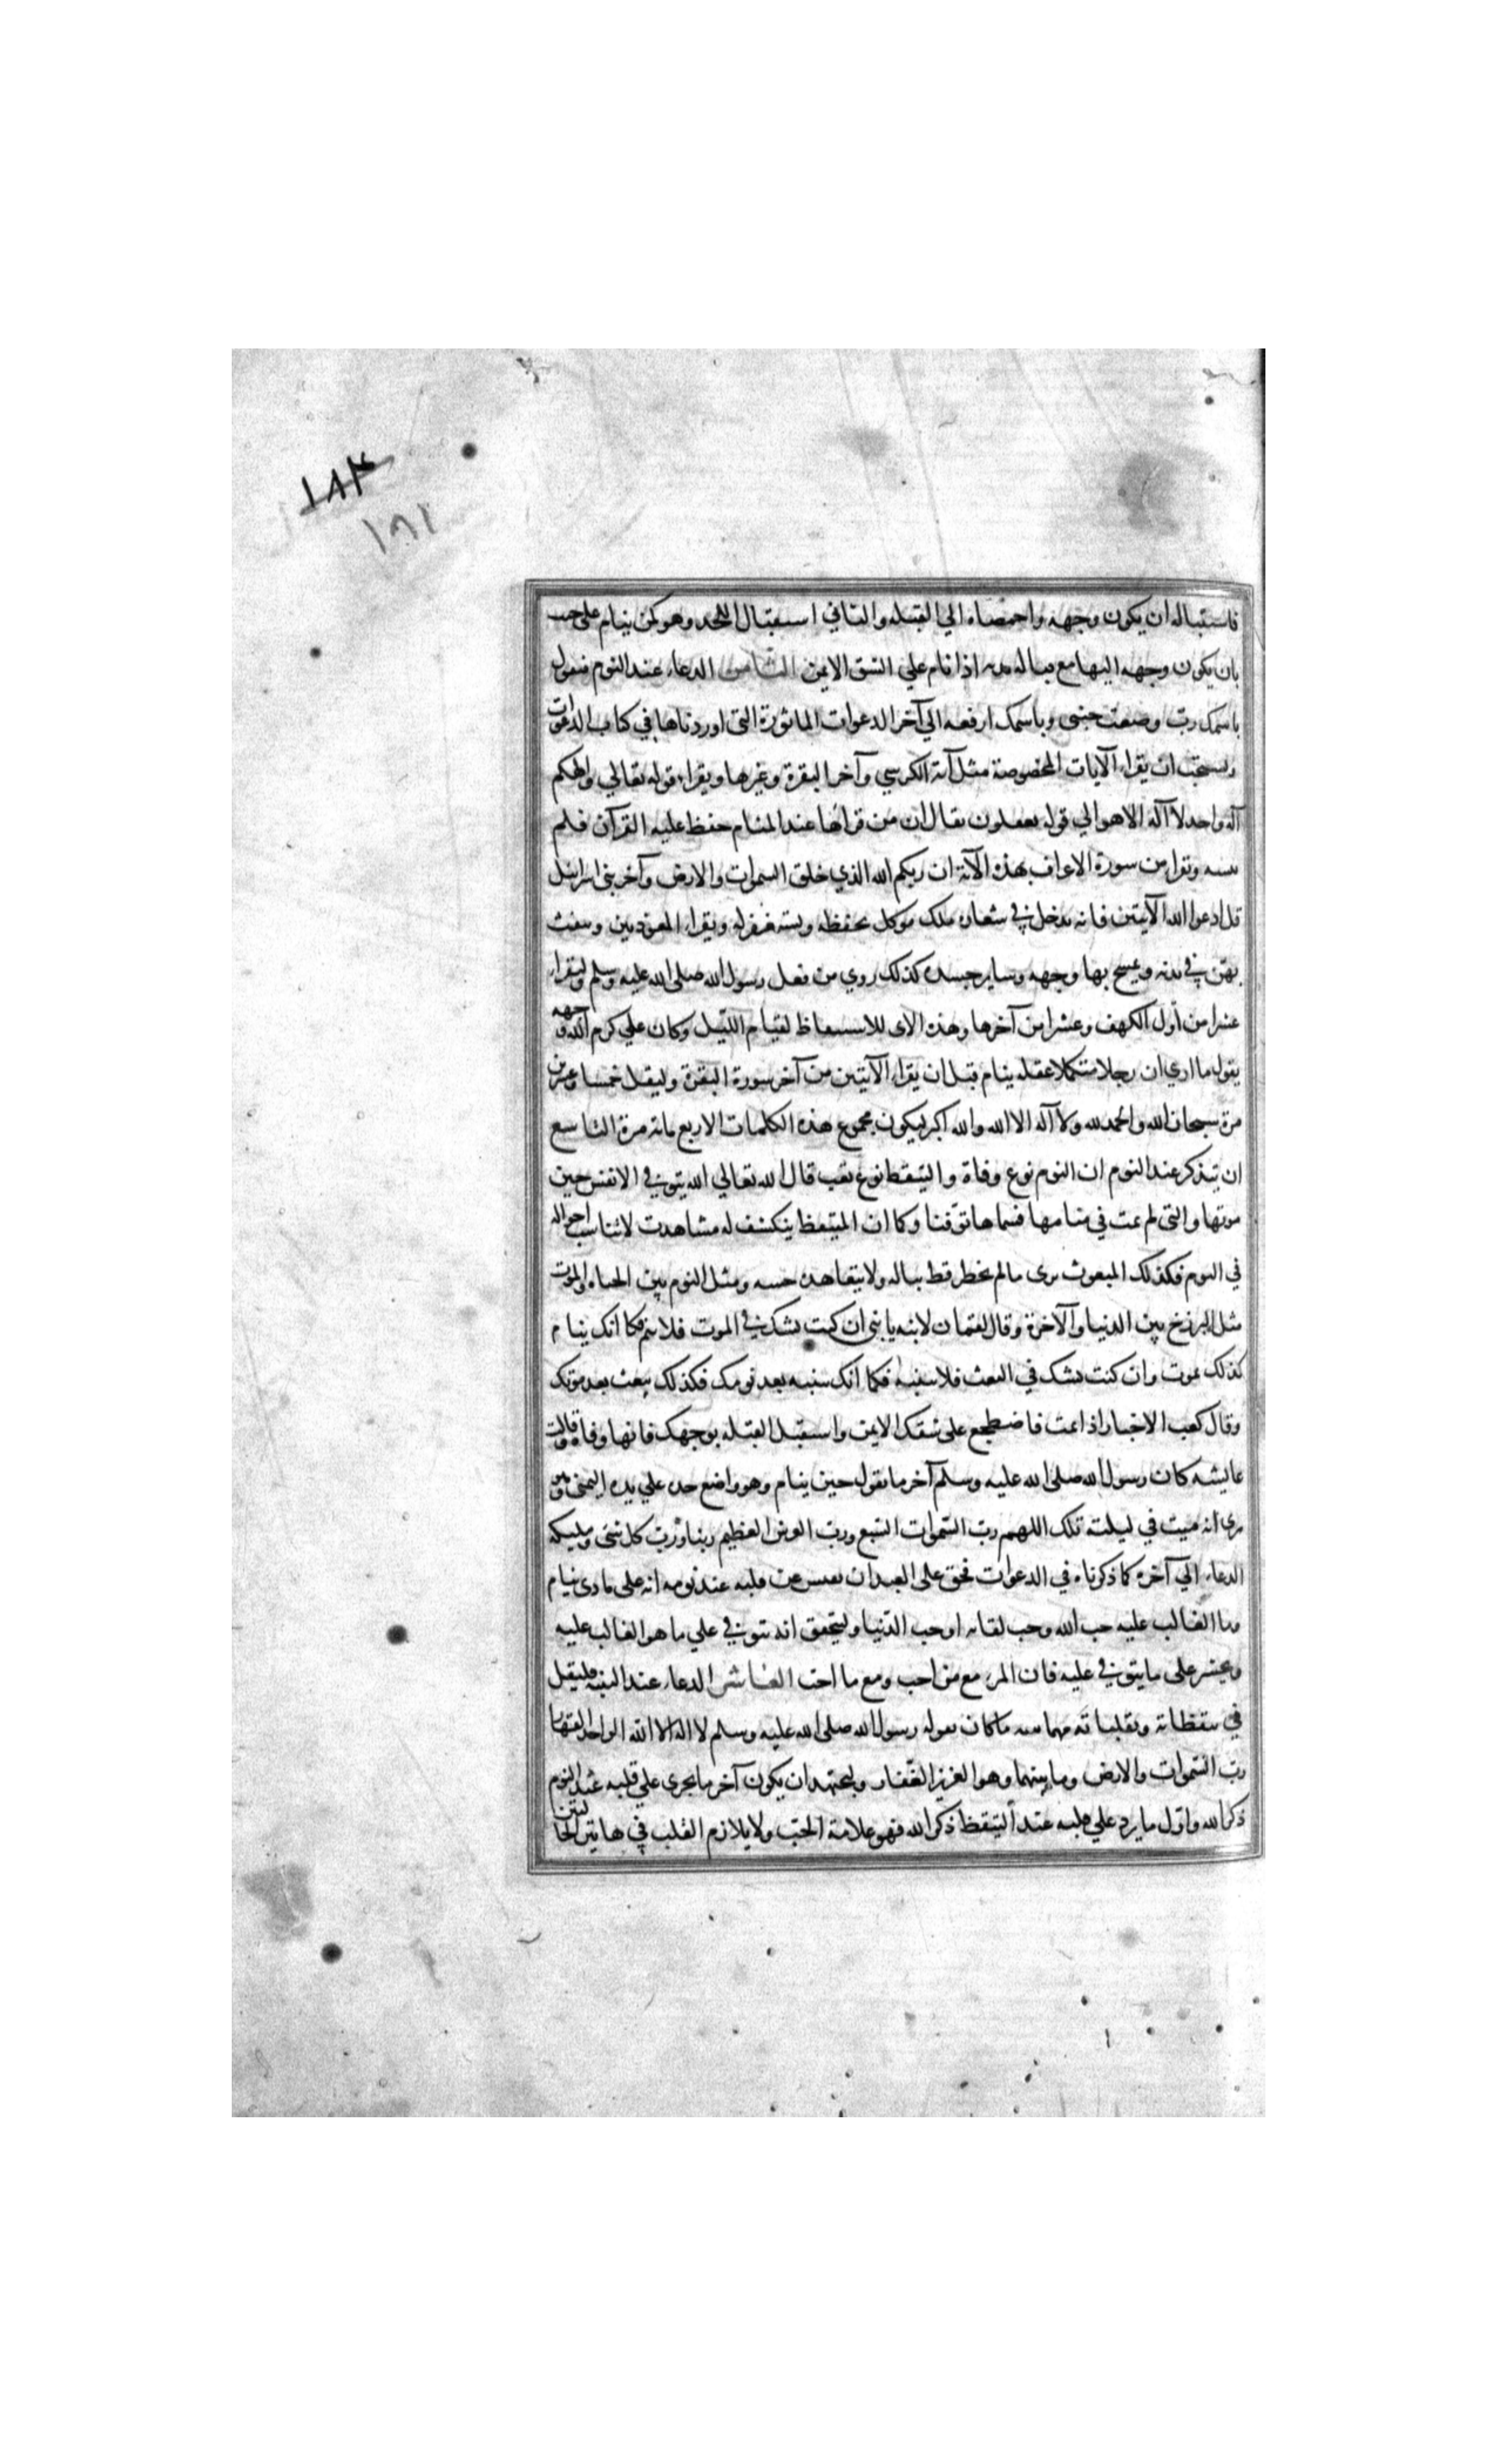 ١٨٣
١٨١
فاستقباله ان يكون وجهه واخمصاه الي القبله والثاني استقبال اللحد وهو كمن ينام علي جنب
بان يكون وجهه اليها مع قباله بدنه اذا نام علي الشق الايمن الثامن الدعاء عند النوم فيقول
باسمك ربّ وضعت جنبي وباسمك ارفعه الي آخر الدعوات الماثورة التي اوردناها في كتاب الدعوات
ويستحب ان يقراء الآيات المخصوصة مثل آية الكرسي وآخر البقرة وغيرها ويقراء قوله تعالي والهكم
آله واحد لا آله الا هو الي قوله يعقلون يقال ان من قرأها عند المنام حفظ عليه القرآن فلم
ينسه ويقرا من سورة الاعراف هذه الآية ان ربكم الله الذي خلق السموات والارض وآخر بني اسرائيل
قل ادعوا الله الآيتين فانه يدخل في شعاره ملك موكل بحفظه ويستغفر له ويقراء المعوذتين وينفث
بهنّ في يديه ويمسح بها وجهه وساير جسده كذلك روي من فعل رسول الله صلى الله عليه وسلم وليقراء
عشرا من أول الكهف وعشرا من آخرها وهذه الآي للاستيقاظ لقيام الليل وكان علي كرم الله وجهه
يقول ما اري ان رجلا مستكملا عقله ينام قبل ان يقراء الآيتين من آخر سورة البقرة وليقل خمسا وعشرين
مرة سبحان الله والحمد لله ولا آله الا الله والله اكبر ليكون مجموع هذه الكلمات الاربع مائة مرة التاسع
ان يتذكر عند النوم ان النوم نوع وفاة والتيقظ نوع بعث قال الله تعالي الله يتوفي الانفس حين
موتها والتي لم تمت في منامها فسماها توفيا وكما ان المتيقظ ينكشف له مشاهدت لا تناسب احواله
في النوم فكذلك المبعوث يرى مالم يخطر قط بباله ولا يشاهده حسه ومثل النوم بين الحياه والموت
مثل البرزخ بين الدنيا والآخرة وقال لقمان لابنه يا بني ان كنت تشك في الموت فلا تنم فكما انك تنام
كذلك تموت وان كنت تشك في البعث فلا تنتبه فكما انك تنتبه بعد نومك فكذلك تبعث بعد موتك
وقال كعب الاحبار اذا نمت فاضطجع على شقك الايمن واستقبل القبله بوجهك فانها وفاه وقالت
عايشه كان رسول الله صلى الله عليه وسلم آخر ما يقول حين ينام وهو واضع خده علي يده اليمنى وهو
يرى انه ميت في ليلته تلك اللهم ربّ السموات السبع وربّ العرش العظيم ربنا وربّ كل شئ ومليكه
الدعاء الي آخره كما ذكرناه في الدعوات فحق على العبد ان يفتش عن قلبه عند نومه انه على ماذى ينام
وما الغالب عليه حب الله وحب لقائه او حب الدّنيا وليتحقق انه يتوفي علي ما هو الغالب عليه
ويحشر على ما يتوفي عليه فان المرء مع من احب ومع ما احب العاشر الدعاء عند التنبه فليقل
في تيقظاته وتقلباته مهما تنبه ما كان يقوله رسول الله صلى الله عليه وسلم لا اله الا الله الواحد القهار
ربّ السّموات والارض وما بينهما وهو العزيز الغّفار وليجتهد ان يكون آخر ما يجرى علي قلبه عند النوم
ذكر الله واوّل ما يرد علي قلبه عند التيقظ ذكر الله فهو علامة الحبّ ولا يلازم القلب في هاتين الحالتين